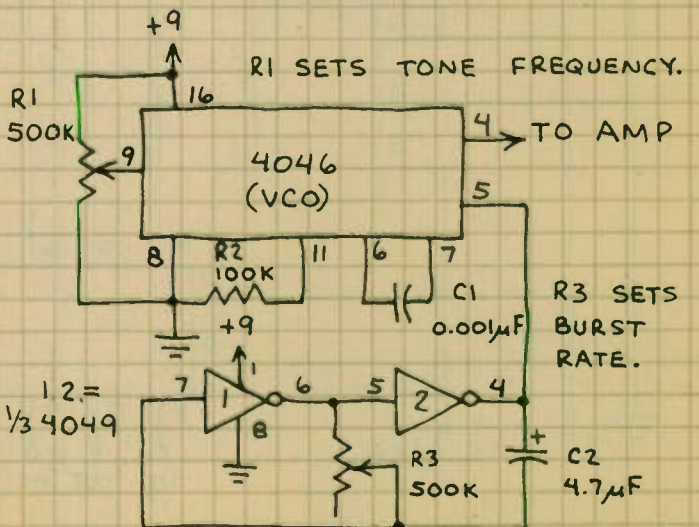 +9
R1 SETS TONE FREQUENCY.
R1
500K
16
9
4046
(VCO)
4
TO AMP
5
8
R2
100K
11
6
7
C1
0.001µF
R3 SETS
BURST
RATE.
+9
1
1.2.=
1/3 4049
7
1
6
5
2
4
8
R3
500K
+
C2
4.7µF